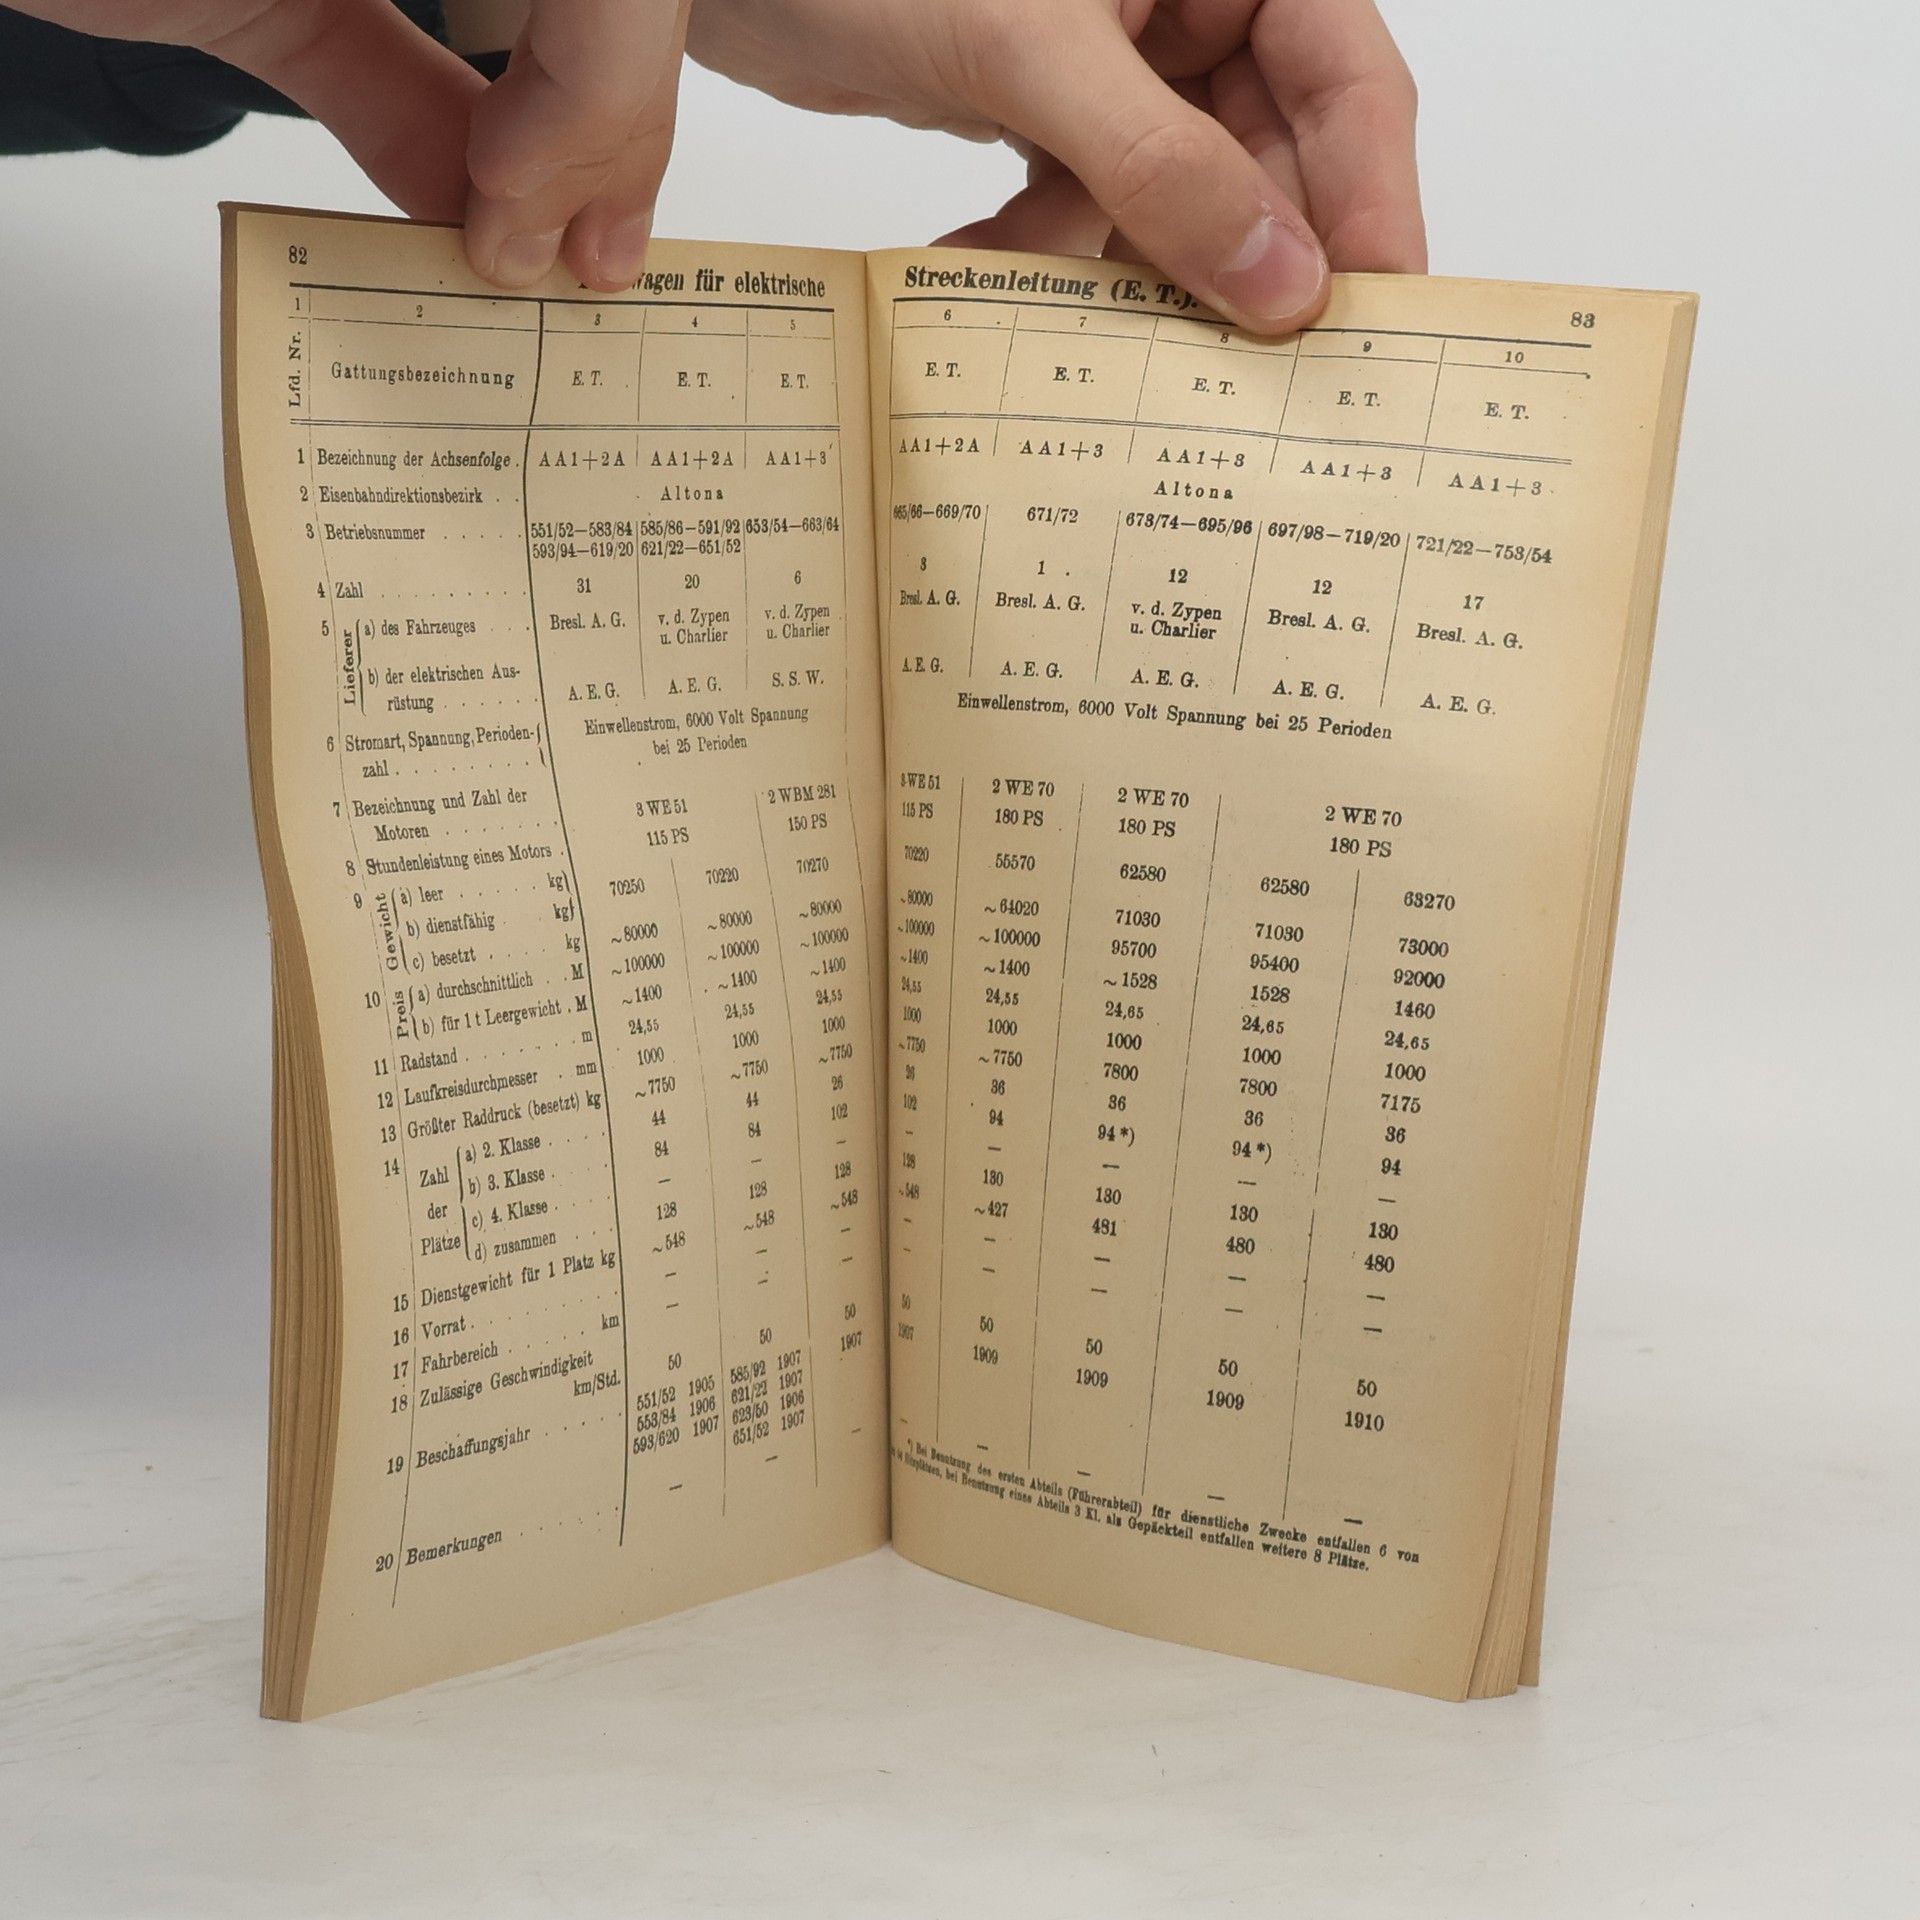 82
wagen für elektrische
1 2 3 4 5
Lfd. Nr. Gattungsbezeichnung E. T. E. T. E. T.
1 Bezeichnung der Achsenfolge . A A 1 + 2 A A A 1 + 2 A A A 1 + 3
2 Eisenbahndirektionsbezirk . . Altona
3 Betriebsnummer . . . . . 551/52—583/84 585/86—591/92 653/54—663/64
593/94—619/20 621/22—651/52
4 Zahl . . . . . . . . . 31 20 6
5 Lieferer a) des Fahrzeuges . . . Bresl. A. G. v. d. Zypen v. d. Zypen
u. Charlier u. Charlier
b) der elektrischen Aus-
rüstung . . . . . . A. E. G. A. E. G. S. S. W.
6 Stromart, Spannung, Perioden- Einwellenstrom, 6000 Volt Spannung
zahl . . . . . . . . bei 25 Perioden
7 Bezeichnung und Zahl der
Motoren . . . . . . . 3 WE 51 2 WBM 281
8 Stundenleistung eines Motors . 115 PS 150 PS
9 Gewicht a) leer . . . . . kg 70250 70220 70270
b) dienstfähig . . kg ~80000 ~80000 ~80000
c) besetzt . . . . kg ~100000 ~100000 ~100000
10 Preis a) durchschnittlich . . M
b) für 1 t Leergewicht . M ~1400 ~1400 ~1400
11 Radstand . . . . . . . m 24,55 24,55 24,55
12 Laufkreisdurchmesser . mm 1000 1000 1000
13 Größter Raddruck (besetzt) kg ~7750 ~7750 ~7750
14 Zahl der Plätze a) 2. Klasse . . . . 44 44 26
b) 3. Klasse . . . . 84 84 102
c) 4. Klasse . . . . — — —
d) zusammen . . . 128 128 128
15 Dienstgewicht für 1 Platz kg ~548 ~548 ~548
16 Vorrat . . . . . . . . — — —
17 Fahrbereich . . . . . km — — —
18 Zulässige Geschwindigkeit
km/Std. 50 50 50
19 Beschaffungsjahr . . . . 551/52 1905 585/92 1907 1907
553/84 1906 621/22 1907
593/620 1907 623/50 1906
651/52 1907
20 Bemerkungen . . . . . — — —
Streckenleitung (E. T.).
83
6 7 8 9 10
E. T. E. T. E. T. E. T. E. T.
A A 1 + 2 A A A 1 + 3 A A 1 + 3 A A 1 + 3 A A 1 + 3
Altona
665/66—669/70 671/72 673/74—695/96 697/98—719/20 721/22—753/54
3 1 12 12 17
Bresl. A. G. Bresl. A. G. v. d. Zypen Bresl. A. G. Bresl. A. G.
u. Charlier
A. E. G. A. E. G. A. E. G. A. E. G. A. E. G.
Einwellenstrom, 6000 Volt Spannung bei 25 Perioden
3 WE 51 2 WE 70 2 WE 70 2 WE 70
115 PS 180 PS 180 PS 180 PS
70220 55570 62580 62580 63270
~80000 ~64020 71030 71030 73000
~100000 ~100000 95700 95400 92000
~1400 ~1400 ~1528 1528 1460
24,55 24,55 24,65 24,65 24,65
1000 1000 1000 1000 1000
~7750 ~7750 7800 7800 7175
26 36 36 36 36
102 94 94 *) 94 *) 94
— — — — —
128 130 130 130 130
~548 ~427 481 480 480
— — — — —
— — — — —
50 50 50 50 50
1907 1909 1909 1909 1910
— — — — —
*) Bei Benutzung des ersten Abteils (Führerabteil) für dienstliche Zwecke entfallen 6 von
bei Benutzung eines Abteils 3 Kl. als Gepäckteil entfallen weitere 8 Plätze.